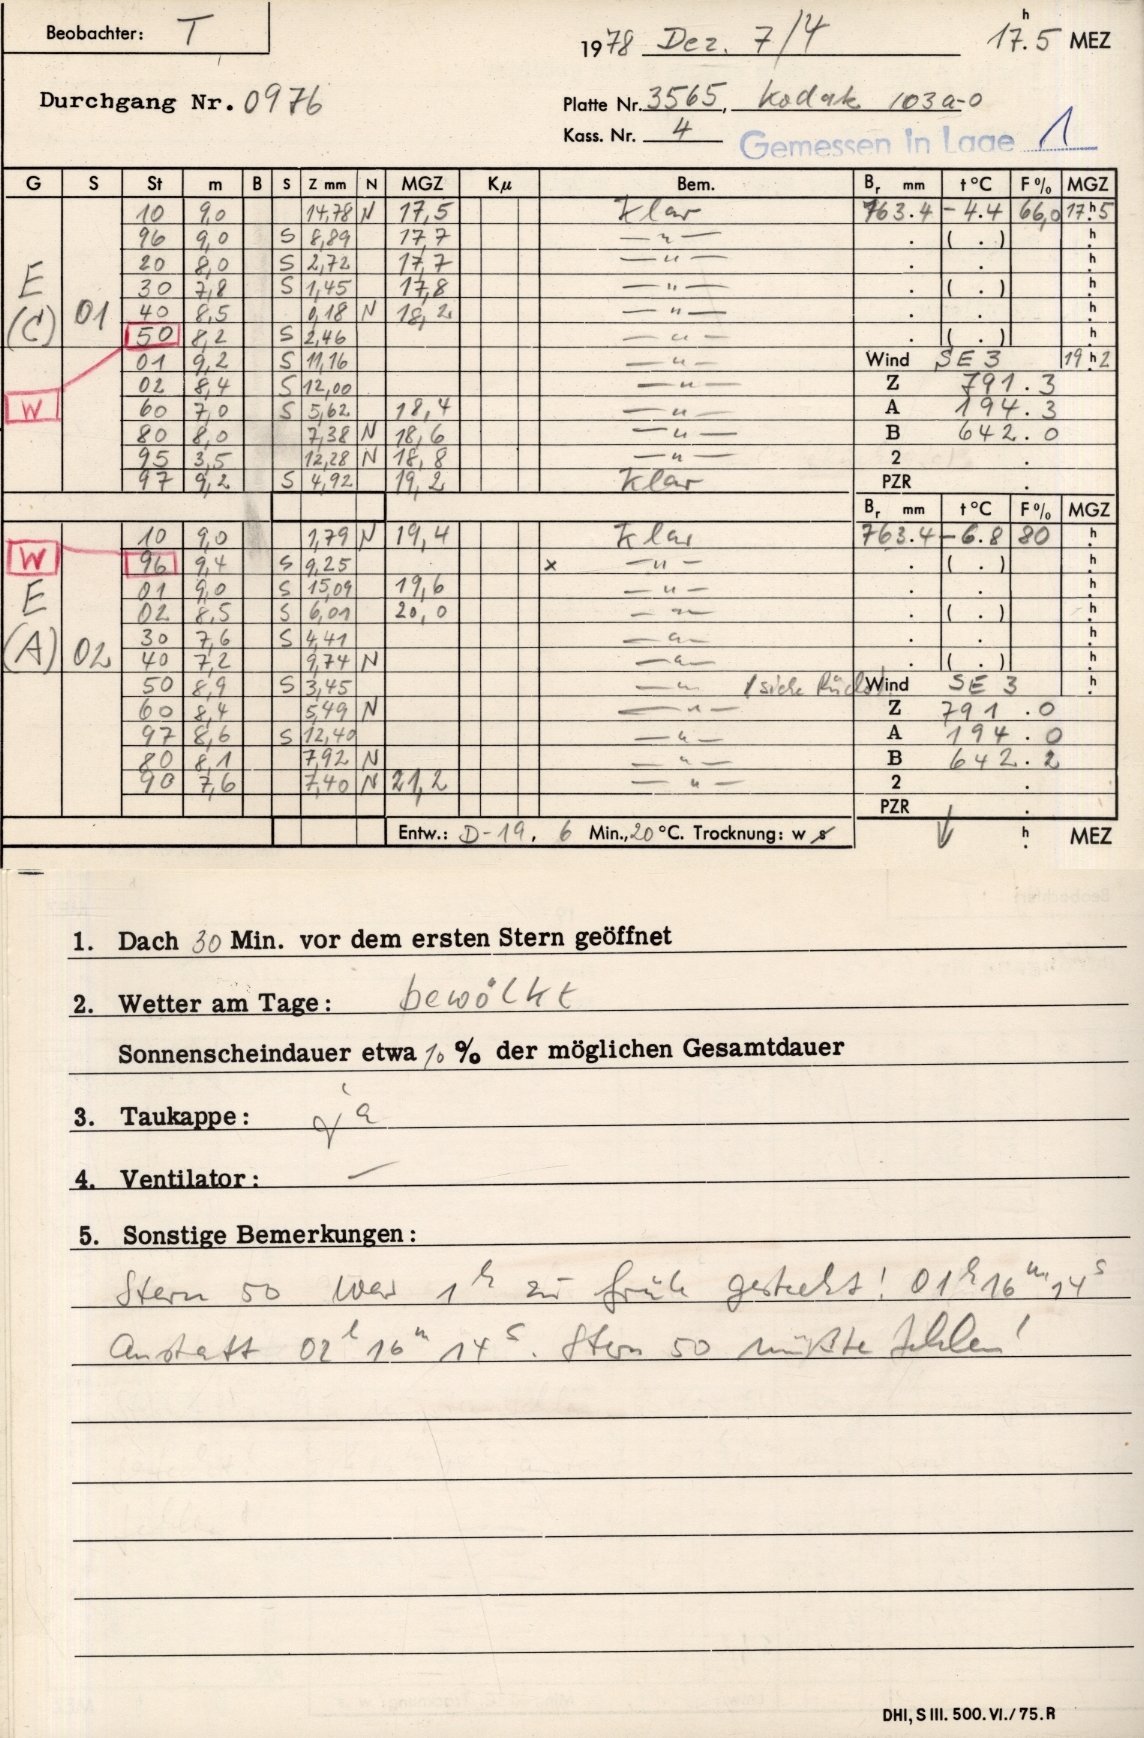 Beobachter: T
1978 Dez. 7/4 17.5 h MEZ
Durchgang Nr. 0976
Platte Nr. 3565, Kodak 103a-0
Kass. Nr. 4
Gemessen in Lage 1
G S St m B S Z mm N MGZ Kµ Bem. Br mm t °C F % MGZ
10 9,0 14,78 N 17,5 Klar 763.4 -4.4 66,0 17 h 5
96 9,0 S 8,89 17,7 —"— . ( . ) h
20 8,0 S 2,72 17,7 —"— . . h
E 30 7,8 S 1,45 17,8 —"— . ( . ) h
(C) 01 40 8,5 0,18 N 18,2 —"— . . h
50 8,2 S 2,46 —"— . ( . ) h
01 9,2 S 11,16 —"— Wind SE 3 19 h 2
02 8,4 S 12,00 —"— Z 791.3
W 60 7,0 S 5,62 18,4 —"— A 194.3
80 8,0 7,38 N 18,6 —"— B 642.0
95 3,5 12,28 N 18,8 —"— 2 .
97 9,2 S 4,92 19,2 Klar PZR .
Br mm t °C F % MGZ
10 9,0 1,79 N 19,4 Klar 763.4 -6.8 80 h
W 96 9,4 S 9,25 x —"— . ( . ) h
E 01 9,0 S 15,09 19,6 —"— . . h
02 8,5 S 6,01 20,0 —"— . ( . ) h
(A) 02 30 7,6 S 4,41 —"— . . h
40 7,2 9,74 N —"— . ( . ) h
50 8,9 S 3,45 —"— (siehe Rücks. Wind SE 3 h
60 8,4 5,49 N —"— Z 791.0
97 8,6 S 12,40 —"— A 194.0
80 8,1 7,92 N —"— B 642.2
90 7,6 7,40 N 21,2 —"— 2 .
PZR .
Entw.: D-19. 6 Min., 20 °C. Trocknung: w s h MEZ
1. Dach 30 Min. vor dem ersten Stern geöffnet
2. Wetter am Tage: bewölkt
Sonnenscheindauer etwa 10 % der möglichen Gesamtdauer
3. Taukappe: ja
4. Ventilator: —
5. Sonstige Bemerkungen:
Stern 50 war 1h zu früh gesteckt! 01h 16m 14s
Anstatt 02h 16m 14s. Stern 50 müßte fehlen!
DHI, S III. 500. VI./75. R